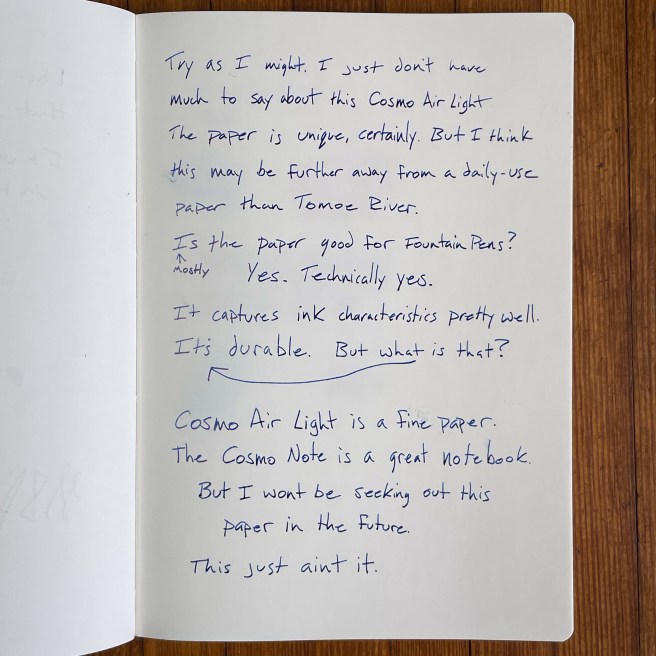 Try as I might. I just don't have
much to say about this Cosmo Air Light
The paper is unique, certainly. But I think
this may be further away from a daily-use
paper than Tomoe River.
Is the paper good for Fountain Pens?
↑
Mostly Yes. Technically yes.
It captures ink characteristics pretty well.
It's durable. But what is that?
Cosmo Air Light is a fine paper.
The Cosmo Note is a great notebook.
But I wont be seeking out this
paper in the future.
This just aint it.